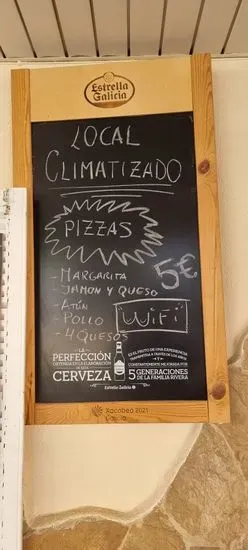 Estrella
Galicia
LOCAL
CLIMATIZADO
PIZZAS
5€
- MARGARITA
- JAMON Y QUESO
- ATÚN
- POLLO
- 4 QUESOS
WiFi
LA
PERFECCIÓN
OBTENIDA EN LA ELABORACIÓN
DE ESTA
CERVEZA
Estrella Galicia
ES EL FRUTO DE UNA EXPERIENCIA
TRANSMITIDA A TRAVÉS DE LOS AÑOS
Y
CONSTANTEMENTE MEJORADA POR
5 GENERACIONES
DE LA FAMILIA RIVERA
Xacobeo 2021
Galicia